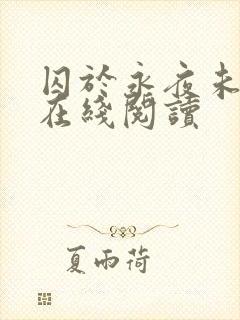 囚於永夜未
在綫閱讀
夏雨荷